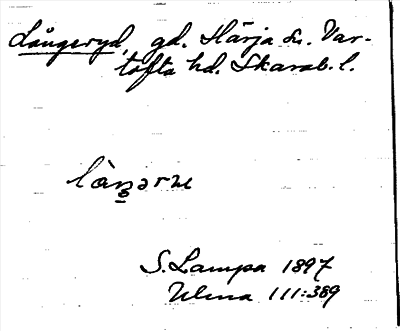 Långeryd, gd. Härja sn. Var-
tofta hd. Skarab. l.
S. Lampa 1897
Ulma 111:389